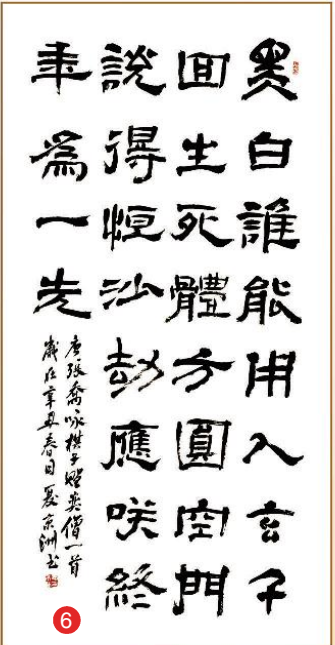 黑白誰能用入玄千
囬生死體方圓空門
說得恒沙劫應咲終
年為一先
唐張喬咏棋子贈奕僧一首
歲在辛丑春日夏京洲书
6